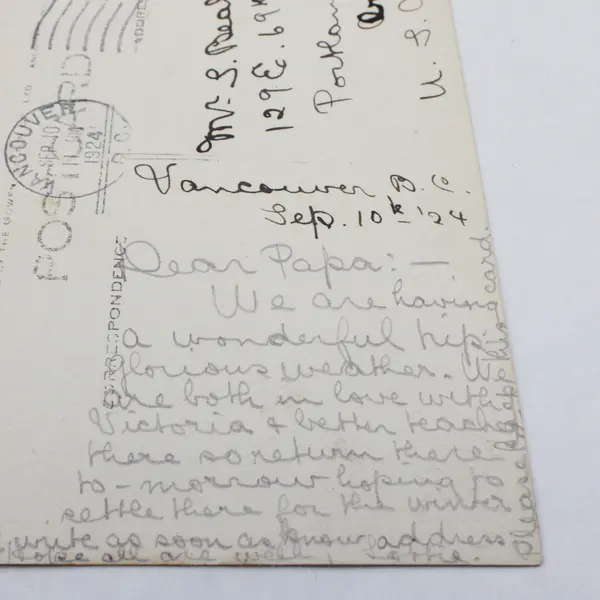 POST CARD
VANCOUVER
SEP 10
1924
B.C.
ADDRESS
CORRESPONDENCE
Mr. S.
129 E. 69
Portlan
Or
U. S.
Vancouver B. C.
Sep. 10th '24
Dear Papa: —
We are having
a wonderful trip
glorious weather. We
are both in love with
Victoria & better teacher
there so return there
to-morrow hoping to
settle there for the winter
write as soon as know address
Hope all are well, Lottie.
Please keep this card.